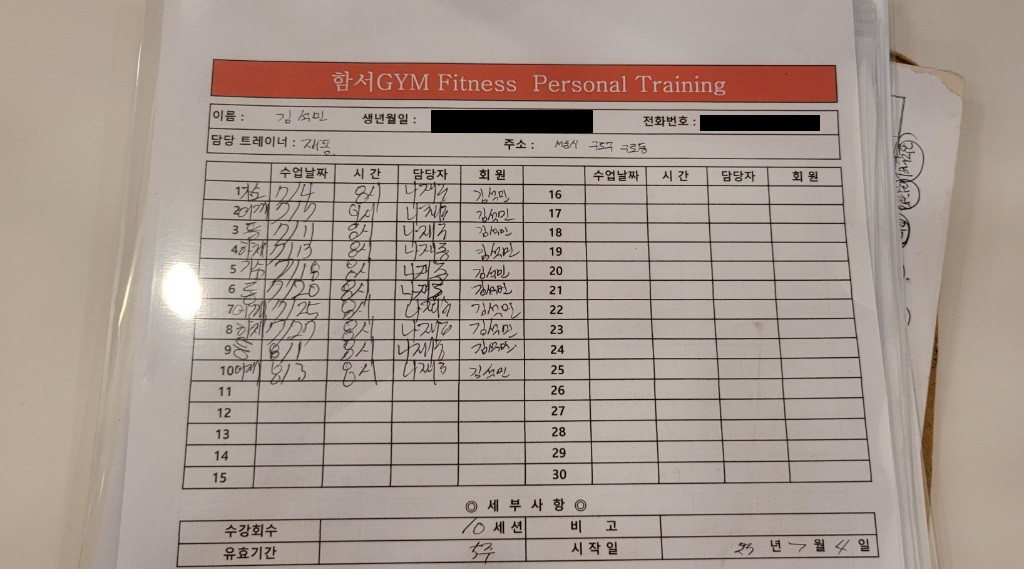 함서GYM Fitness Personal Training
이름 : 김석민 생년월일 : 전화번호 :
담당 트레이너 : 재풍 주소 : 서울시 구로구 구로동
수업날짜 시 간 담당자 회 원 수업날짜 시 간 담당자 회 원
1 가슴 7/4 8시 김석민 16
2 어깨 7/7 김석민 17
3 등 7/11 8시 김석민 18
4 하체 7/13 8시 김석민 19
5 가슴 7/18 8시 김석민 20
6 등 7/20 8시 김석민 21
7 어깨 7/25 8시 김석민 22
8 하체 7/27 8시 김석민 23
9 등 8/1 8시 김석민 24
10 어깨 8/3 8시 김석민 25
11 26
12 27
13 28
14 29
15 30
◎ 세 부 사 항 ◎
수강회수 10 세션 비 고
유효기간 5주 시 작 일 23 년 7 월 4 일